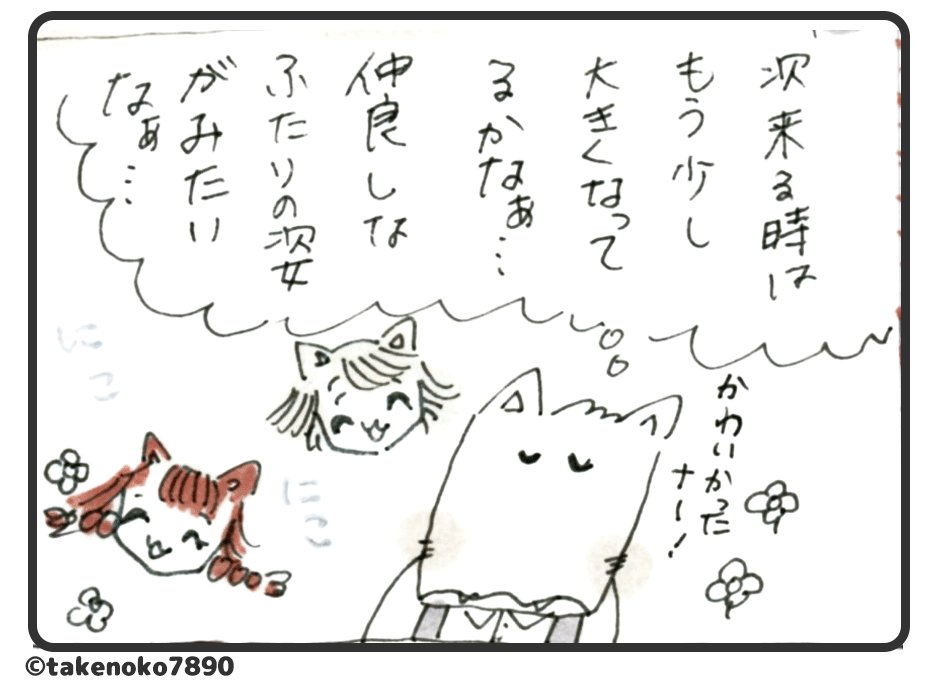 次来る時は
もう少し
大きくなって
るかなぁ…
仲良しな
ふたりの姿
がみたい
なぁ…
かわいかった
ナー!
にこ
にこ
©takenoko7890